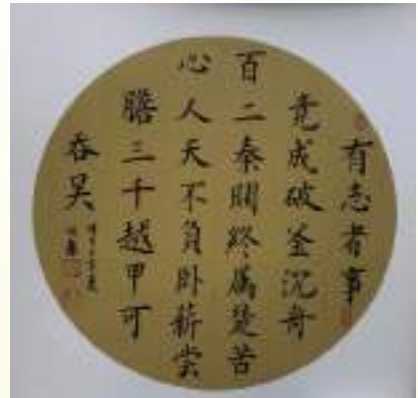 有志者事
竟成破釜沉舟
百二秦關終属楚苦
心人天不負卧薪尝
膽三千越甲可
吞吴